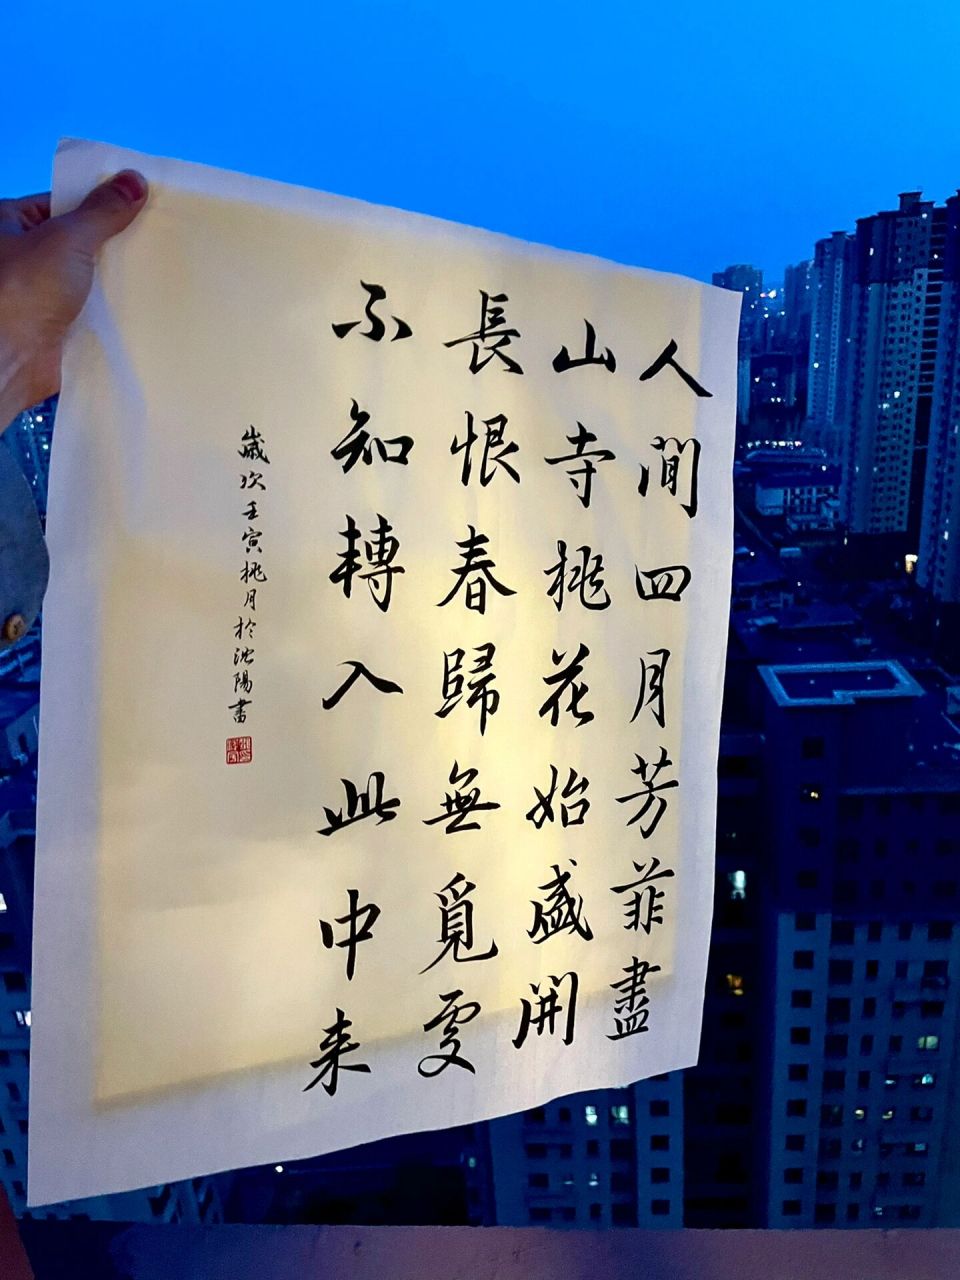 人間四月芳菲盡
山寺桃花始盛開
長恨春歸無覓處
不知轉入此中来
歲次壬寅桃月於沈陽書